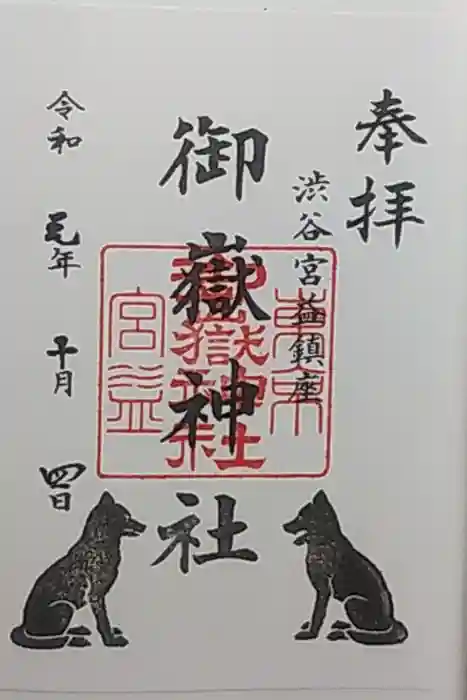 奉拝
渋谷宮益鎮座
御嶽神社
東京
御嶽神社
宮益
令和元年十月四日